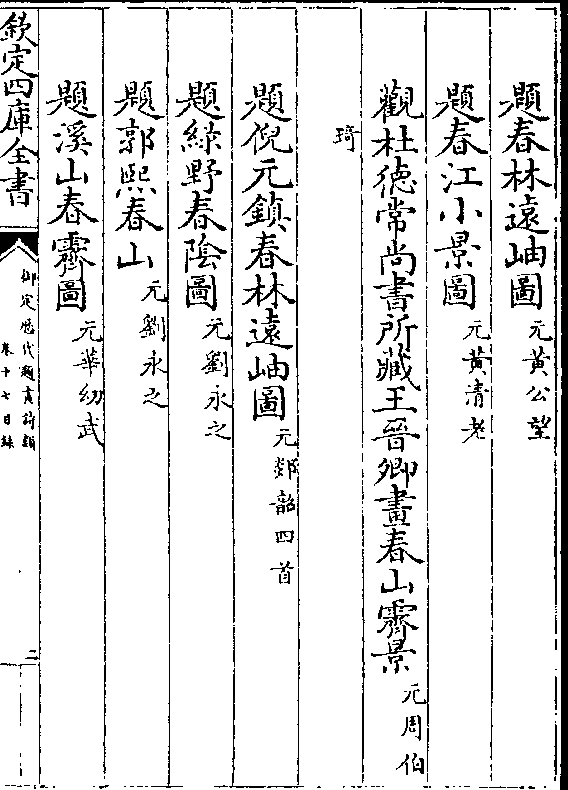 題春林遠岫圖元黄公望
題春江小景圖元黄清老
觀杜徳常尚書所藏王晉卿畫春山霽景元周伯
琦
題倪元鎮春林遠岫圖元鄭韶四首
題綠野春陰圖元劉永之
題郭熙春山元劉永之
題溪山春霽圖元華幼武
欽定四庫全書
御定歴代題畫詩類
卷十七目録
二